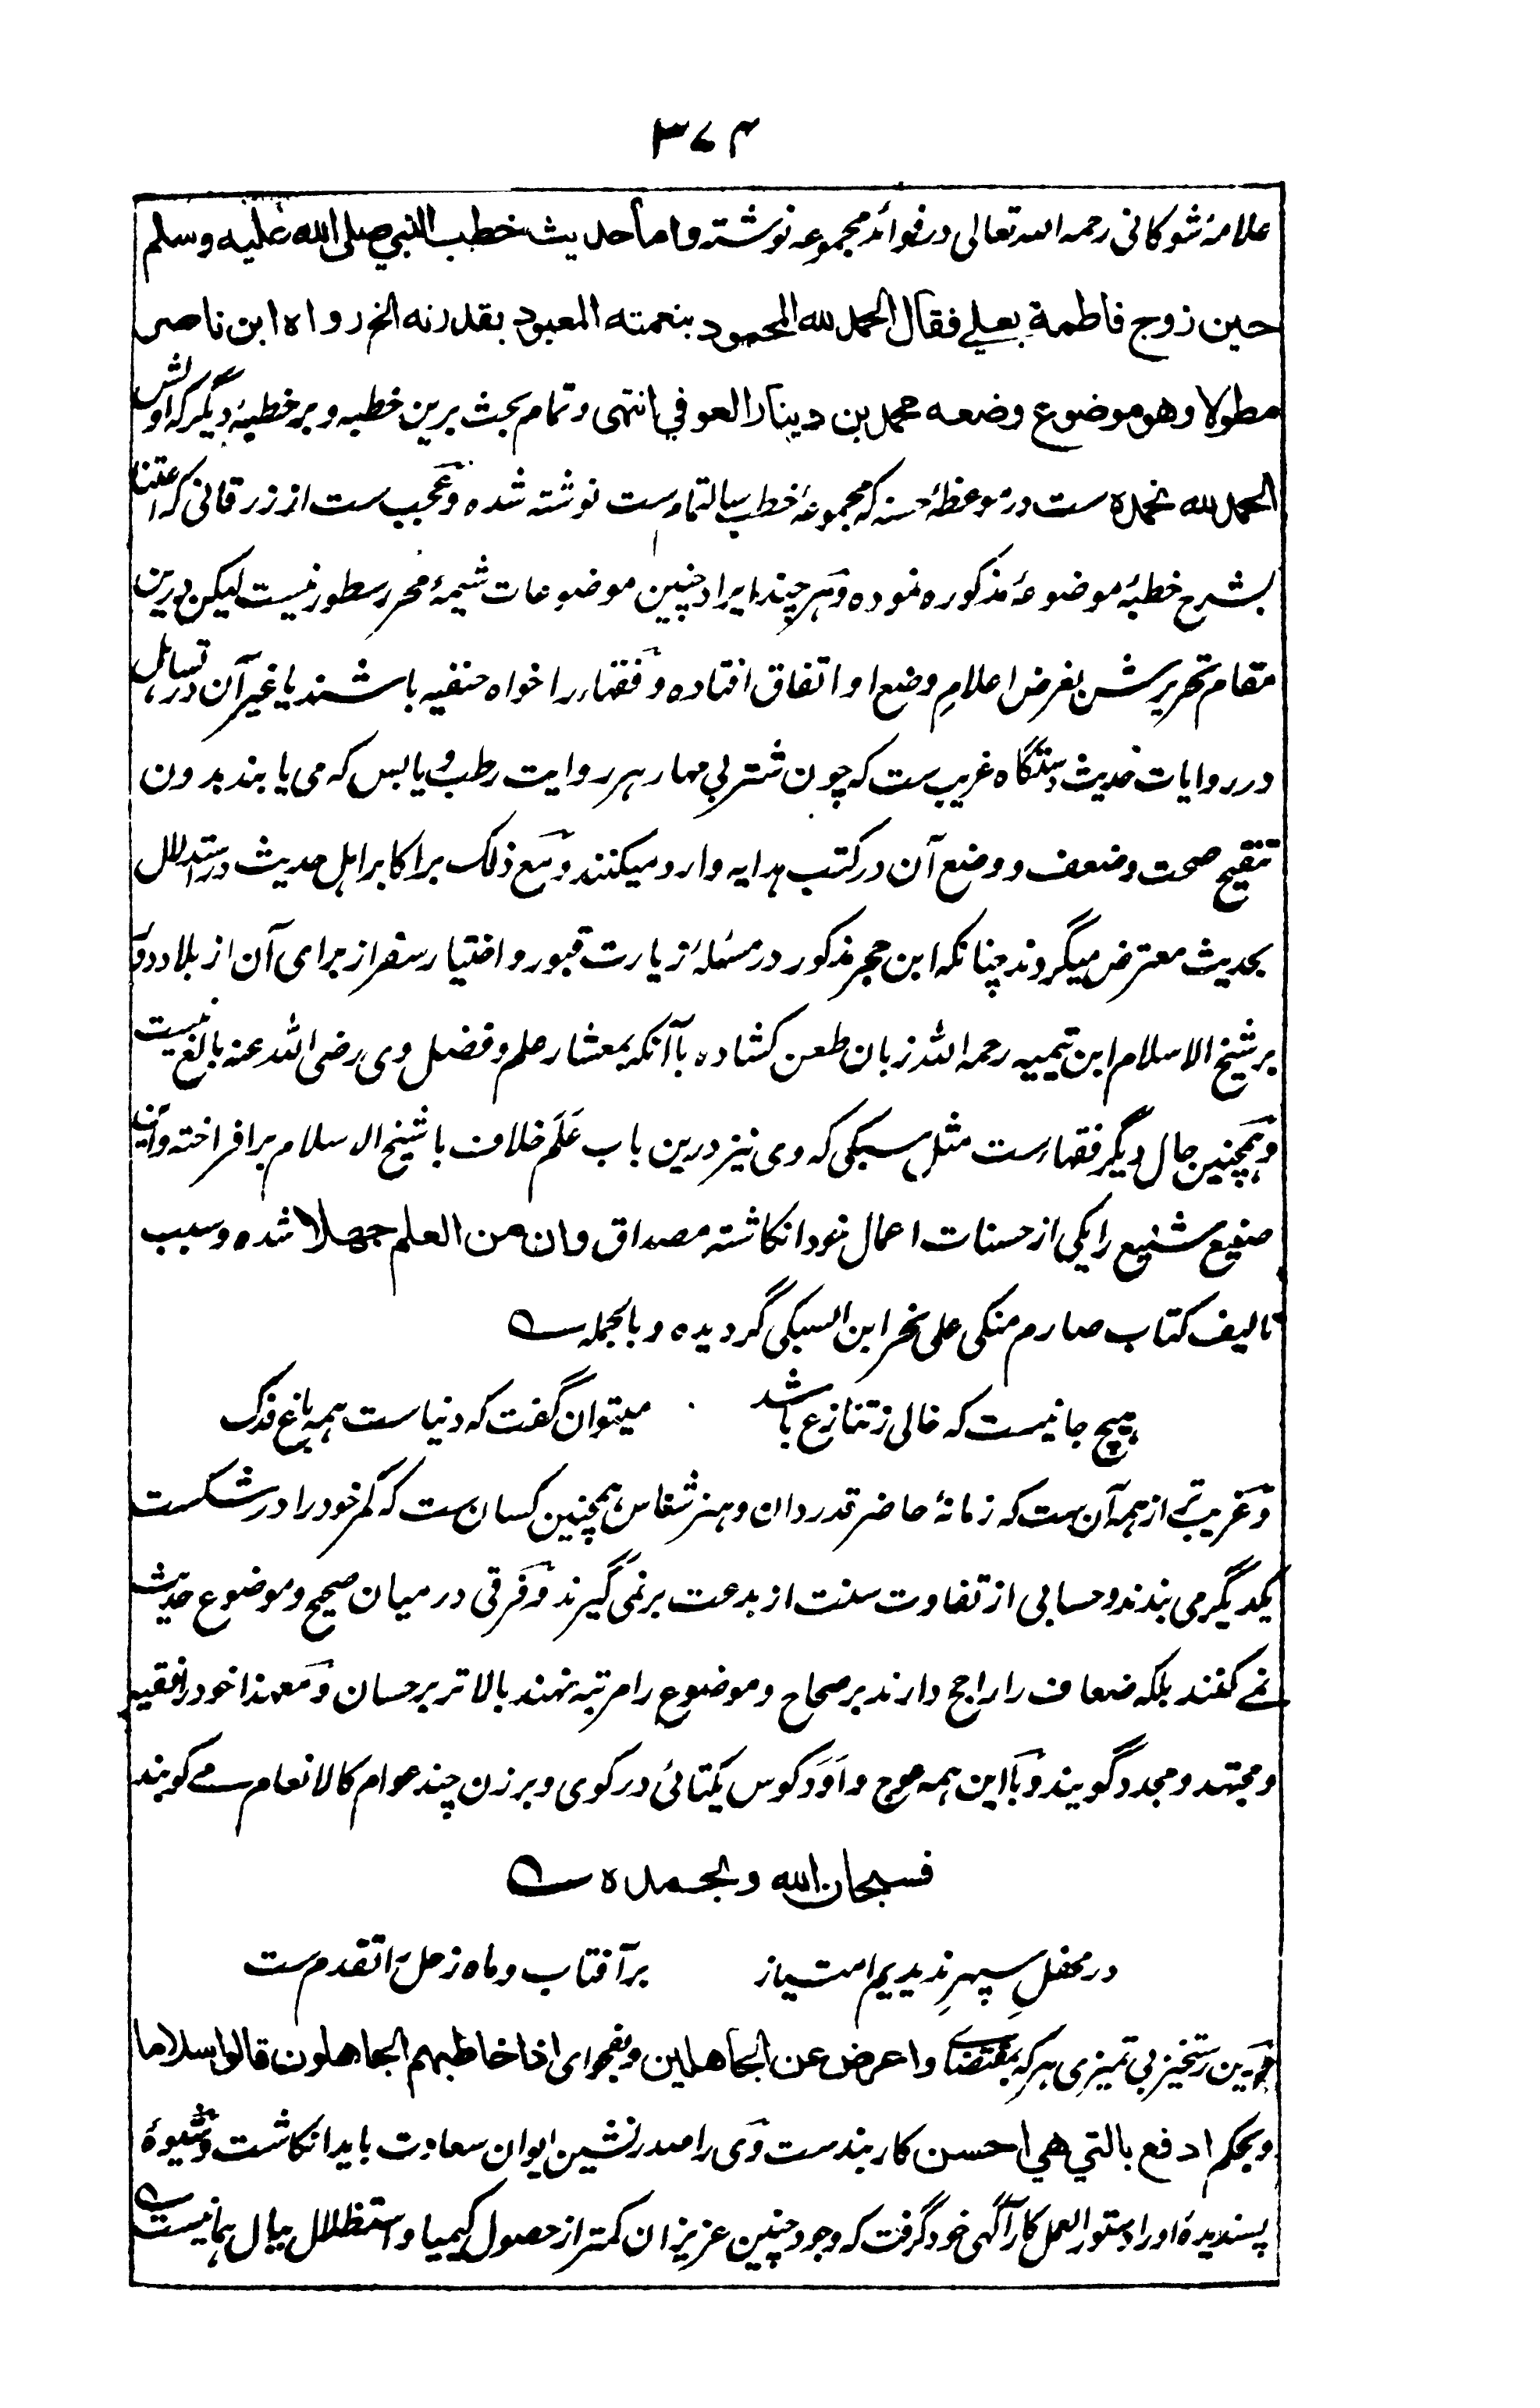 ۳۷۴
علامۂ شوکانی رحمہ اللہ تعالی در فوائد مجموعہ نوشتہ واما حدیث خطب النبي صلى الله عليه وسلم
حين زوج فاطمة بعلي فقال الحمد لله المحمود بنعمته المعبود بقدرته الخ رواه ابن ناصر
مطولا وهو موضوع وضعه محمد بن دينار العوفي انتهى وتمام بحث برین خطبه و بر خطبۂ دیگر که اولش
الحمد لله نحمده ست در موعظۂ حسنه که مجموعۂ خطب سالتمام ست نوشته شده و عجب ست از زرقانی که اعتنا
بشرح خطبۂ موضوعۂ مذکوره نموده و هر چند ایراد چنین موضوعات شیمۂ محرر سطور نیست لیکن درین
مقام تحریرش بغرض اعلامِ وضع او اتفاق افتاده و فقهاء را خواه حنفیه باشند یا غیر آن در تساہل
در روایات حدیث دستگاه غریب ست که چون شتر بی مهار هر روایت رطب و یابس که می یابند بدون
تنقیح صحت و ضعف و وضع آن در کتب هدایه وارد میکنند و مع ذلک بر اکابر اہل حدیث در استدلال
بحدیث معترض میگردند چنانکه ابن حجر مذکور در مسئلۂ زیارت قبور و اختیار سفر از برای آن از بلاد دور
بر شیخ الاسلام ابن تیمیه رحمہ اللہ زبان طعن کشاده با آنکه بمعشار علم و فضل وی رضی اللہ عنہ بالغ نیست
و ہمچنین حال دیگر فقہاء ست مثل سبکی که وی نیز درین باب عَلَم خلاف با شیخ الاسلام برافراخته و این
صنیع شنیع را یکی از حسنات اعمال خود انکاشته مصداق وان من العلم جهلا شده و سبب
تالیف کتاب صارم منکی علی نحر ابن السبکی گردیده و بالجملہ ؎
ہیچ جا نیست که خالی ز تنازع باشد میتوان گفت که دنیا ست ہمہ باغ فدک
و غریب تر از همه آن ست که زمانۂ حاضر قدردان و هنرشناس همچنین کسان ست که کمر خود را در شکست
یکدیگر می بندند و حسابی از تفاوت سنت از بدعت بر نمی گیرند و فرقی در میان صحیح و موضوع حدیث
نمے کنند بلکه ضعاف را راجح دارند بر صحاح و موضوع را مرتبه نهند بالاتر بر حسان و معهذا خود را فقیه
و مجتهد و مجدد گویند و با این همه عوج و اَوَد کوس یکتائی در کوی و برزن چند عوام کالانعام مے کوبند
فسبحان الله وبحمده ؎
در محفلِ سپهرِ ندیدیم امتیاز بر آفتاب و ماه زحل را تقدم ست
درین رستخیز بی تمیزی هر که بمقتضای واعرض عن الجاهلين و بفحوای اذا خاطبهم الجاهلون قالوا سلاما
و بحکم ادفع بالتي هي احسن کاربند ست وی را صدرنشین ایوان سعادت باید انکاشت و شیوۂ
پسندیدۂ او را دستور العمل کار آگهی خود گرفت که وجود چنین عزیزان کمتر از حصول کیمیا و استظلال ببال هما نیست ؎